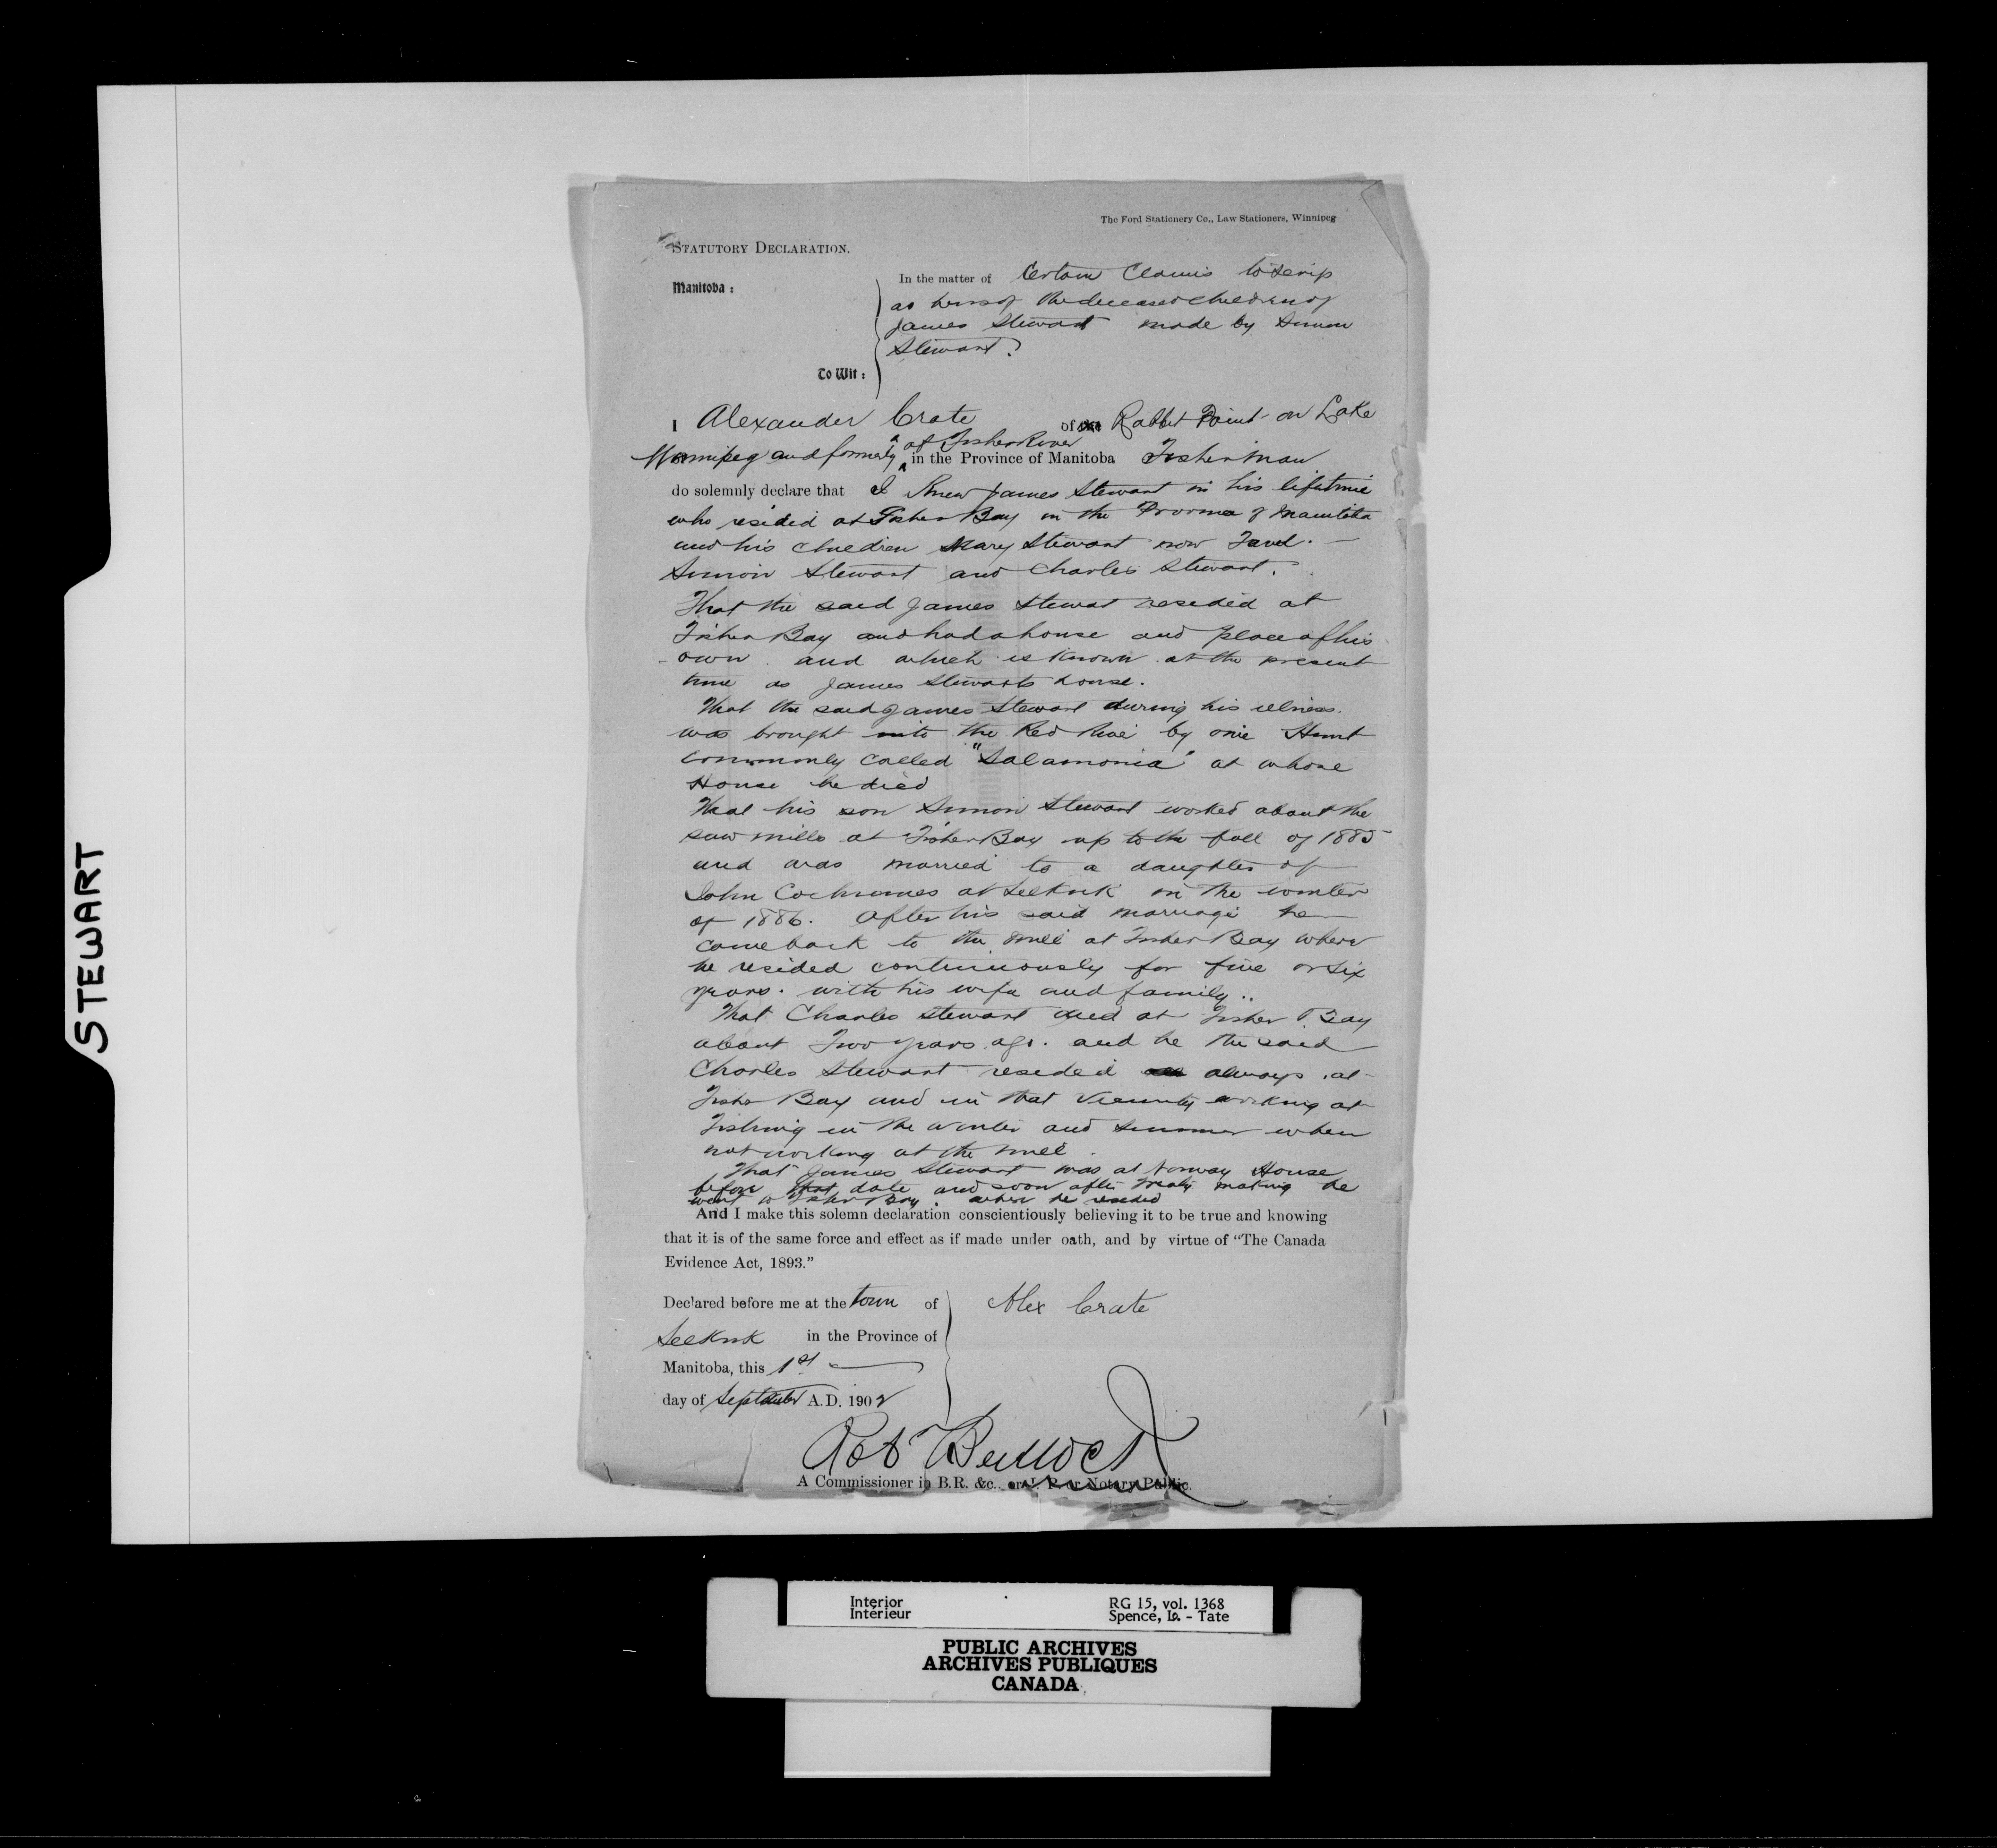 The Ford Stationery Co., Law Stationers, Winnipeg
STATUTORY DECLARATION.
Manitoba:
To Wit:
In the matter of Certain Claims to Scrip
as heirs of the deceased children of
James Stewart made by Simon
Stewart.
I Alexander Crate of Rabbit Point on Lake
Winnipeg and formerly of Fisher River in the Province of Manitoba Fisherman
do solemnly declare that I knew James Stewart in his lifetime
who resided at Fisher Bay in the Province of Manitoba
and his children Mary Stewart now
Simon Stewart and Charles Stewart.
That the said James Stewart resided at
Fisher Bay and had a house and place of his
own and which is known at the present
time as James Stewarts house.
That the said James Stewart during his illness.
was brought into the Red River by one Hunt
commonly called "Salamonia" at whose
House he died
That his son Simon Stewart worked about the
saw mills at Fisher Bay up to the fall of 1885
and was married to a daughter of
John Cochranes at Selkirk in the winter
of 1886. After his said marriage he
came back to the mill at Fisher Bay where
he resided continuously for five or six
years. with his wife and family..
That Charles Stewart died at Fisher Bay
about Two years ago. and he the said
Charles Stewart resided always at
Fisher Bay and in that vicinity working at
Fishing in the winter and summer when
not working at the mill.
That James Stewart was at Norway House
before that date and soon after treaty making he
went to Fisher Bay. where he resided
And I make this solemn declaration conscientiously believing it to be true and knowing
that it is of the same force and effect as if made under oath, and by virtue of "The Canada
Evidence Act, 1893."
Declared before me at the town of
Selkirk in the Province of
Manitoba, this 1st
day of September A.D. 1902
Alex Crate
Rob Bullock
A Commissioner in B.R. &c., or J. P. or Notary Public.
STEWART
Interior
Intérieur
RG 15, vol. 1368
Spence, Is. - Tate
PUBLIC ARCHIVES
ARCHIVES PUBLIQUES
CANADA